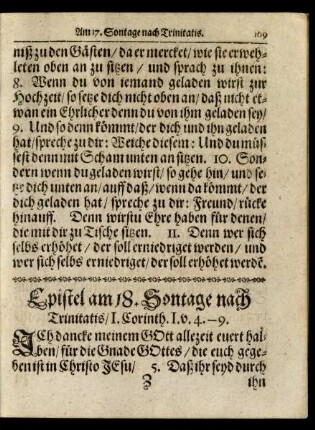 Am 17. Sontage nach Trinitatis. 109
niß zu den Gästen/ da er mercket/ wie sie erweh-
leten oben an zu sitzen/ und sprach zu ihnen:
8. Wenn du von iemand geladen wirst zur
Hochzeit/ so setze dich nicht oben an/ daß nicht et-
wan ein Ehrlicher denn du von ihm geladen sey/
9. Und so denn kömmt/ der dich und ihn geladen
hat/ spreche zu dir: Weiche diesem: Und du müs-
sest denn mit Scham unten an sitzen. 10. Son-
dern wenn du geladen wirst/ so gehe hin/ und se-
tze dich unten an/ auff daß/ wenn da kömt/ der
dich geladen hat/ spreche zu dir: Freund/ rücke
hinauff. Denn wirstu Ehre haben für denen/
die mit dir zu Tische sitzen. 11. Denn wer sich
selbs erhöhet/ der soll erniedriget werden/ und
wer sich selbs erniedriget/ der soll erhöhet werdē.
Epistel am 18. Sontage nach
Trinitatis/ I. Corinth. I. v. 4.–9.
ICh dancke meinem GOtt allezeit euert hal-
ben/ für die Gnade GOttes/ die euch gege-
ben ist in Christo JEsu/ 5. Daß ihr seyd durch
Z ihn